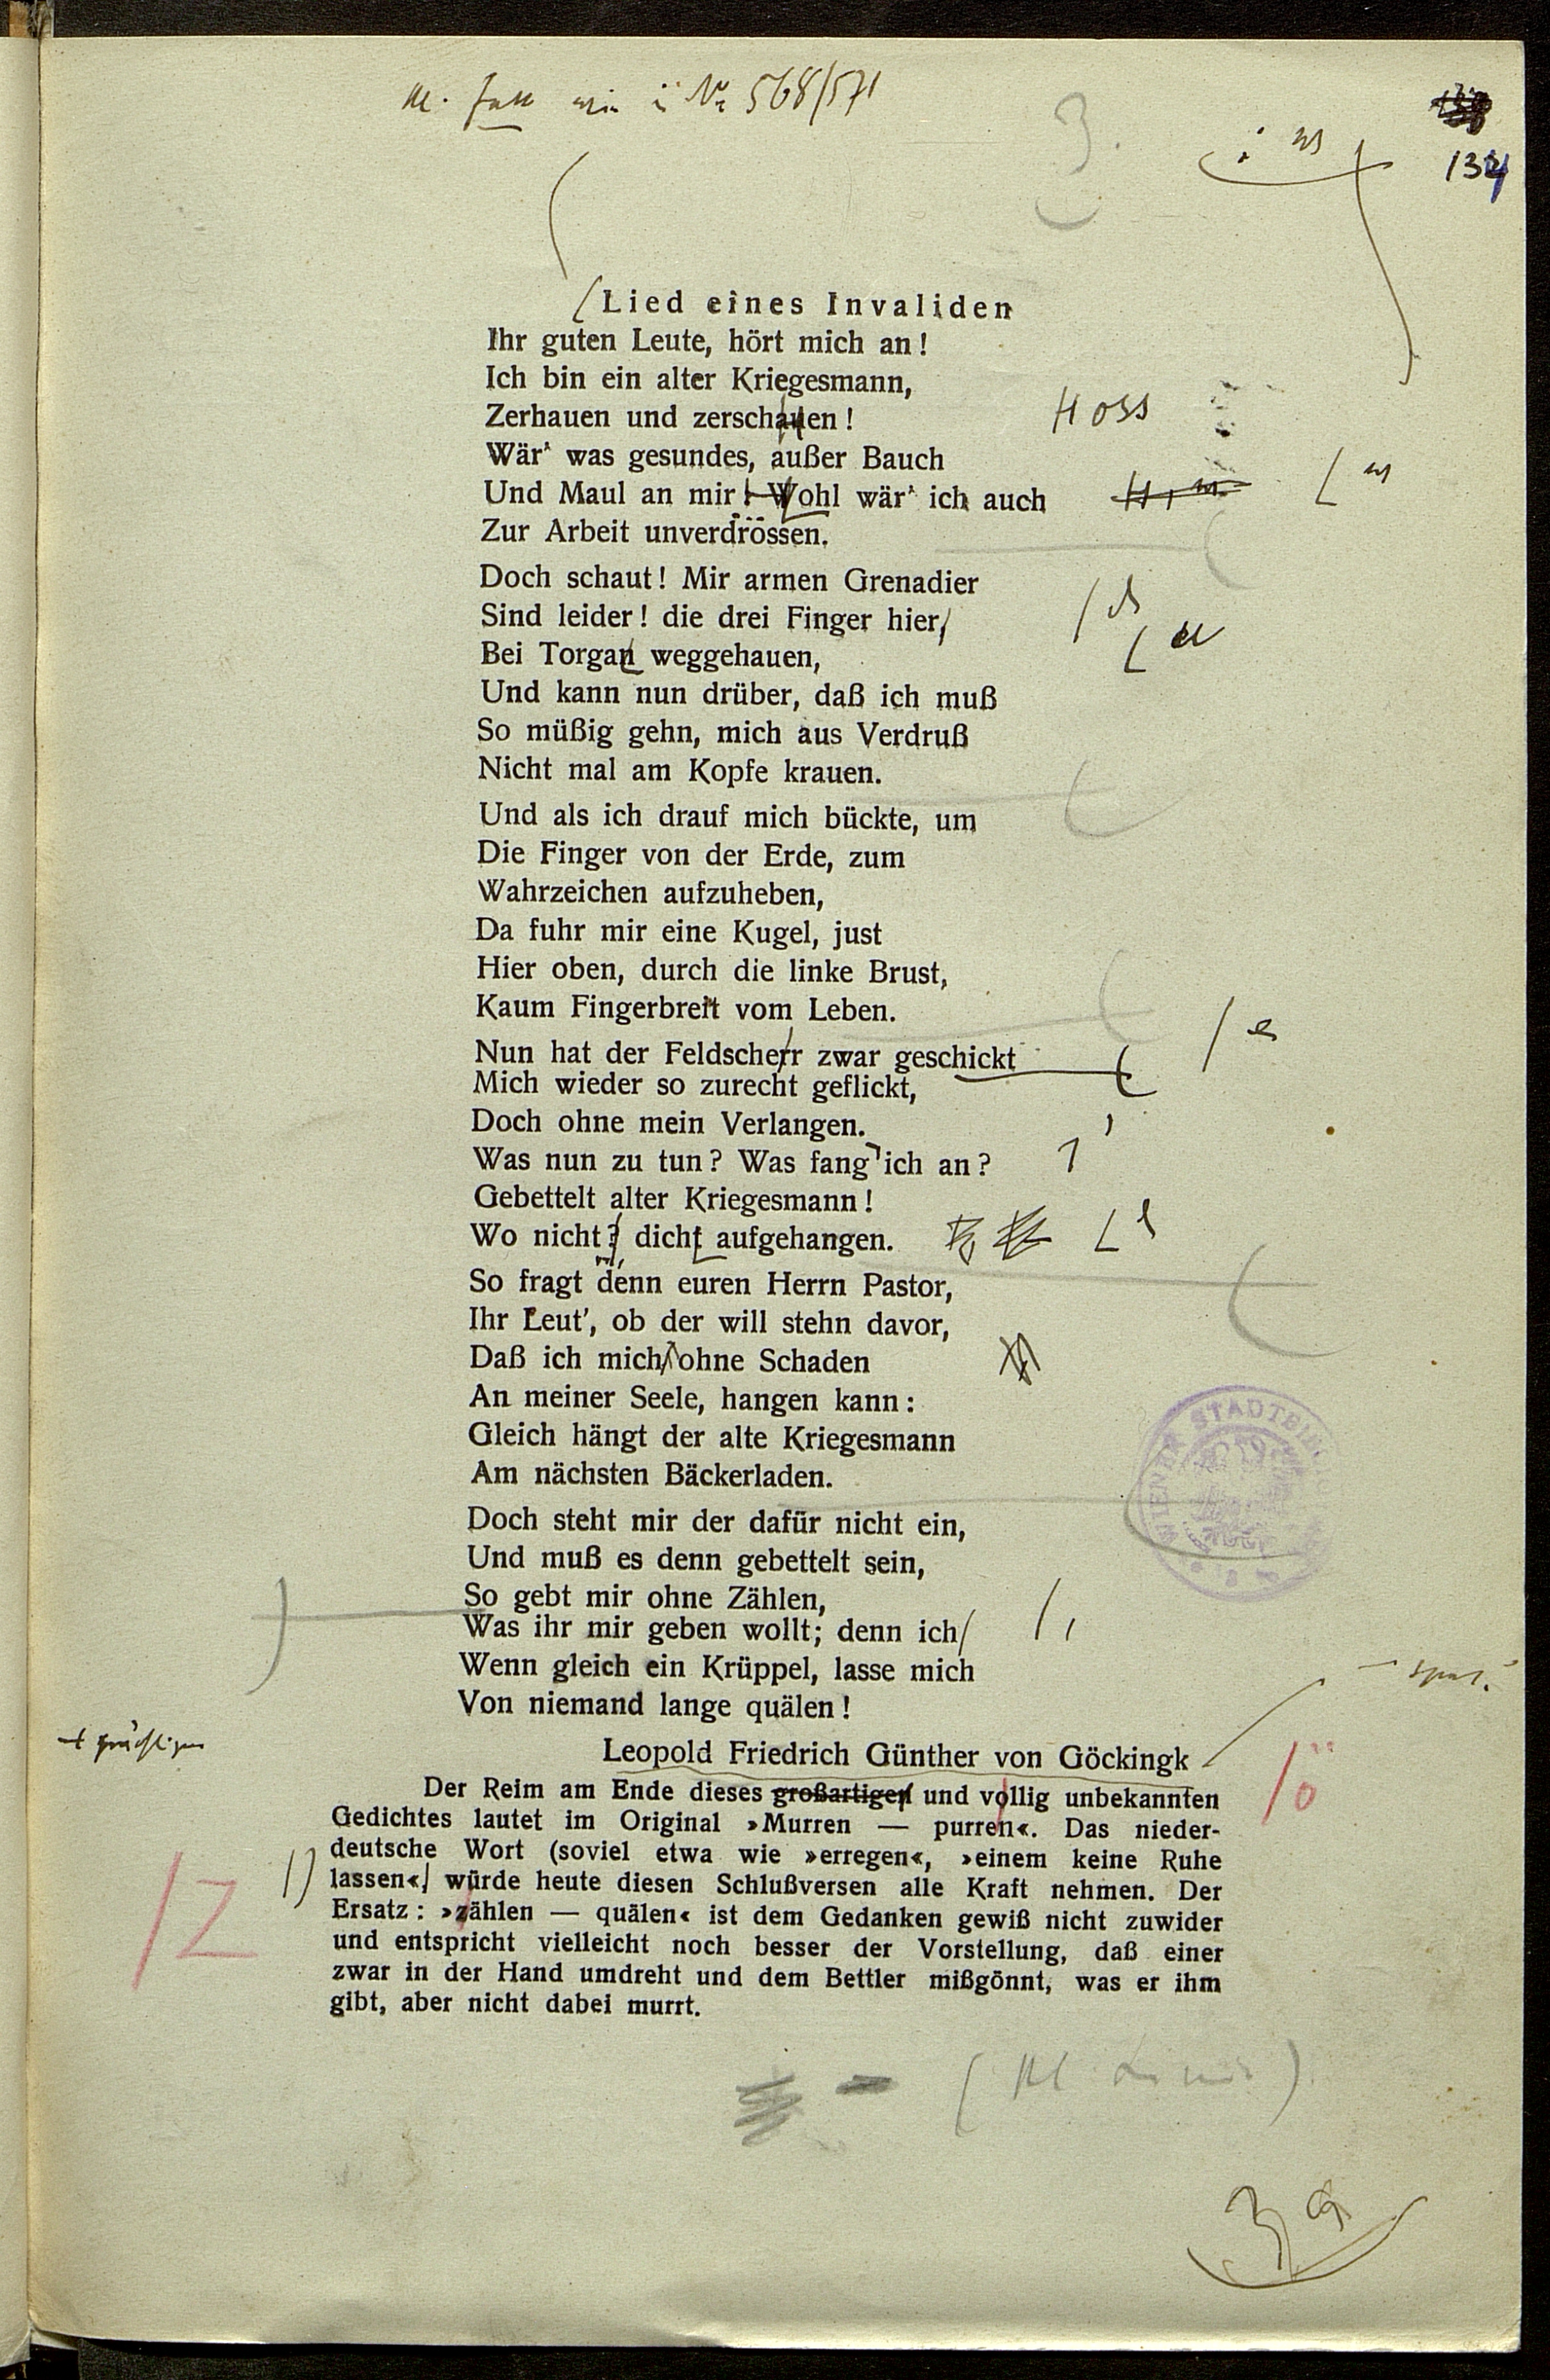 № 568/571
3.
134
Lied eines Invaliden
Ihr guten Leute, hört mich an!
Ich bin ein alter Kriegesmann,
Zerhauen und zerschauen!
oss
Wär' was gesundes, außer Bauch
Und Maul an mir! Wohl wär' ich auch
w
Zur Arbeit unverdrossen.
Doch schaut! Mir armen Grenadier
Sind leider! die drei Finger hier,
Bei Torgan weggehauen,
u
Und kann nun drüber, daß ich muß
So müßig gehn, mich aus Verdruß
Nicht mal am Kopfe krauen.
Und als ich drauf mich bückte, um
Die Finger von der Erde, zum
Wahrzeichen aufzuheben,
Da fuhr mir eine Kugel, just
Hier oben, durch die linke Brust,
Kaum Fingerbreit vom Leben.
Nun hat der Feldscherr zwar geschickt
e
Mich wieder so zurecht geflickt,
Doch ohne mein Verlangen.
Was nun zu tun? Was fang ich an?
Gebettelt alter Kriegesmann!
Wo nicht? dicht aufgehangen.
So fragt denn euren Herrn Pastor,
Ihr Leut', ob der will stehn davor,
Daß ich mich, ohne Schaden
An meiner Seele, hangen kann:
Gleich hängt der alte Kriegesmann
Am nächsten Bäckerladen.
Doch steht mir der dafür nicht ein,
Und muß es denn gebettelt sein,
So gebt mir ohne Zählen,
Was ihr mir geben wollt; denn ich
Wenn gleich ein Krüppel, lasse mich
Von niemand lange quälen!
Leopold Friedrich Günther von Göckingk
Der Reim am Ende dieses großartigen und vollig unbekannten
ö
Gedichtes lautet im Original »Murren — purren«. Das nieder-
deutsche Wort (soviel etwa wie »erregen«, »einem keine Ruhe
lassen«, würde heute diesen Schlußversen alle Kraft nehmen. Der
Z
Ersatz: »zählen — quälen« ist dem Gedanken gewiß nicht zuwider
und entspricht vielleicht noch besser der Vorstellung, daß einer
zwar in der Hand umdreht und dem Bettler mißgönnt, was er ihm
gibt, aber nicht dabei murrt.